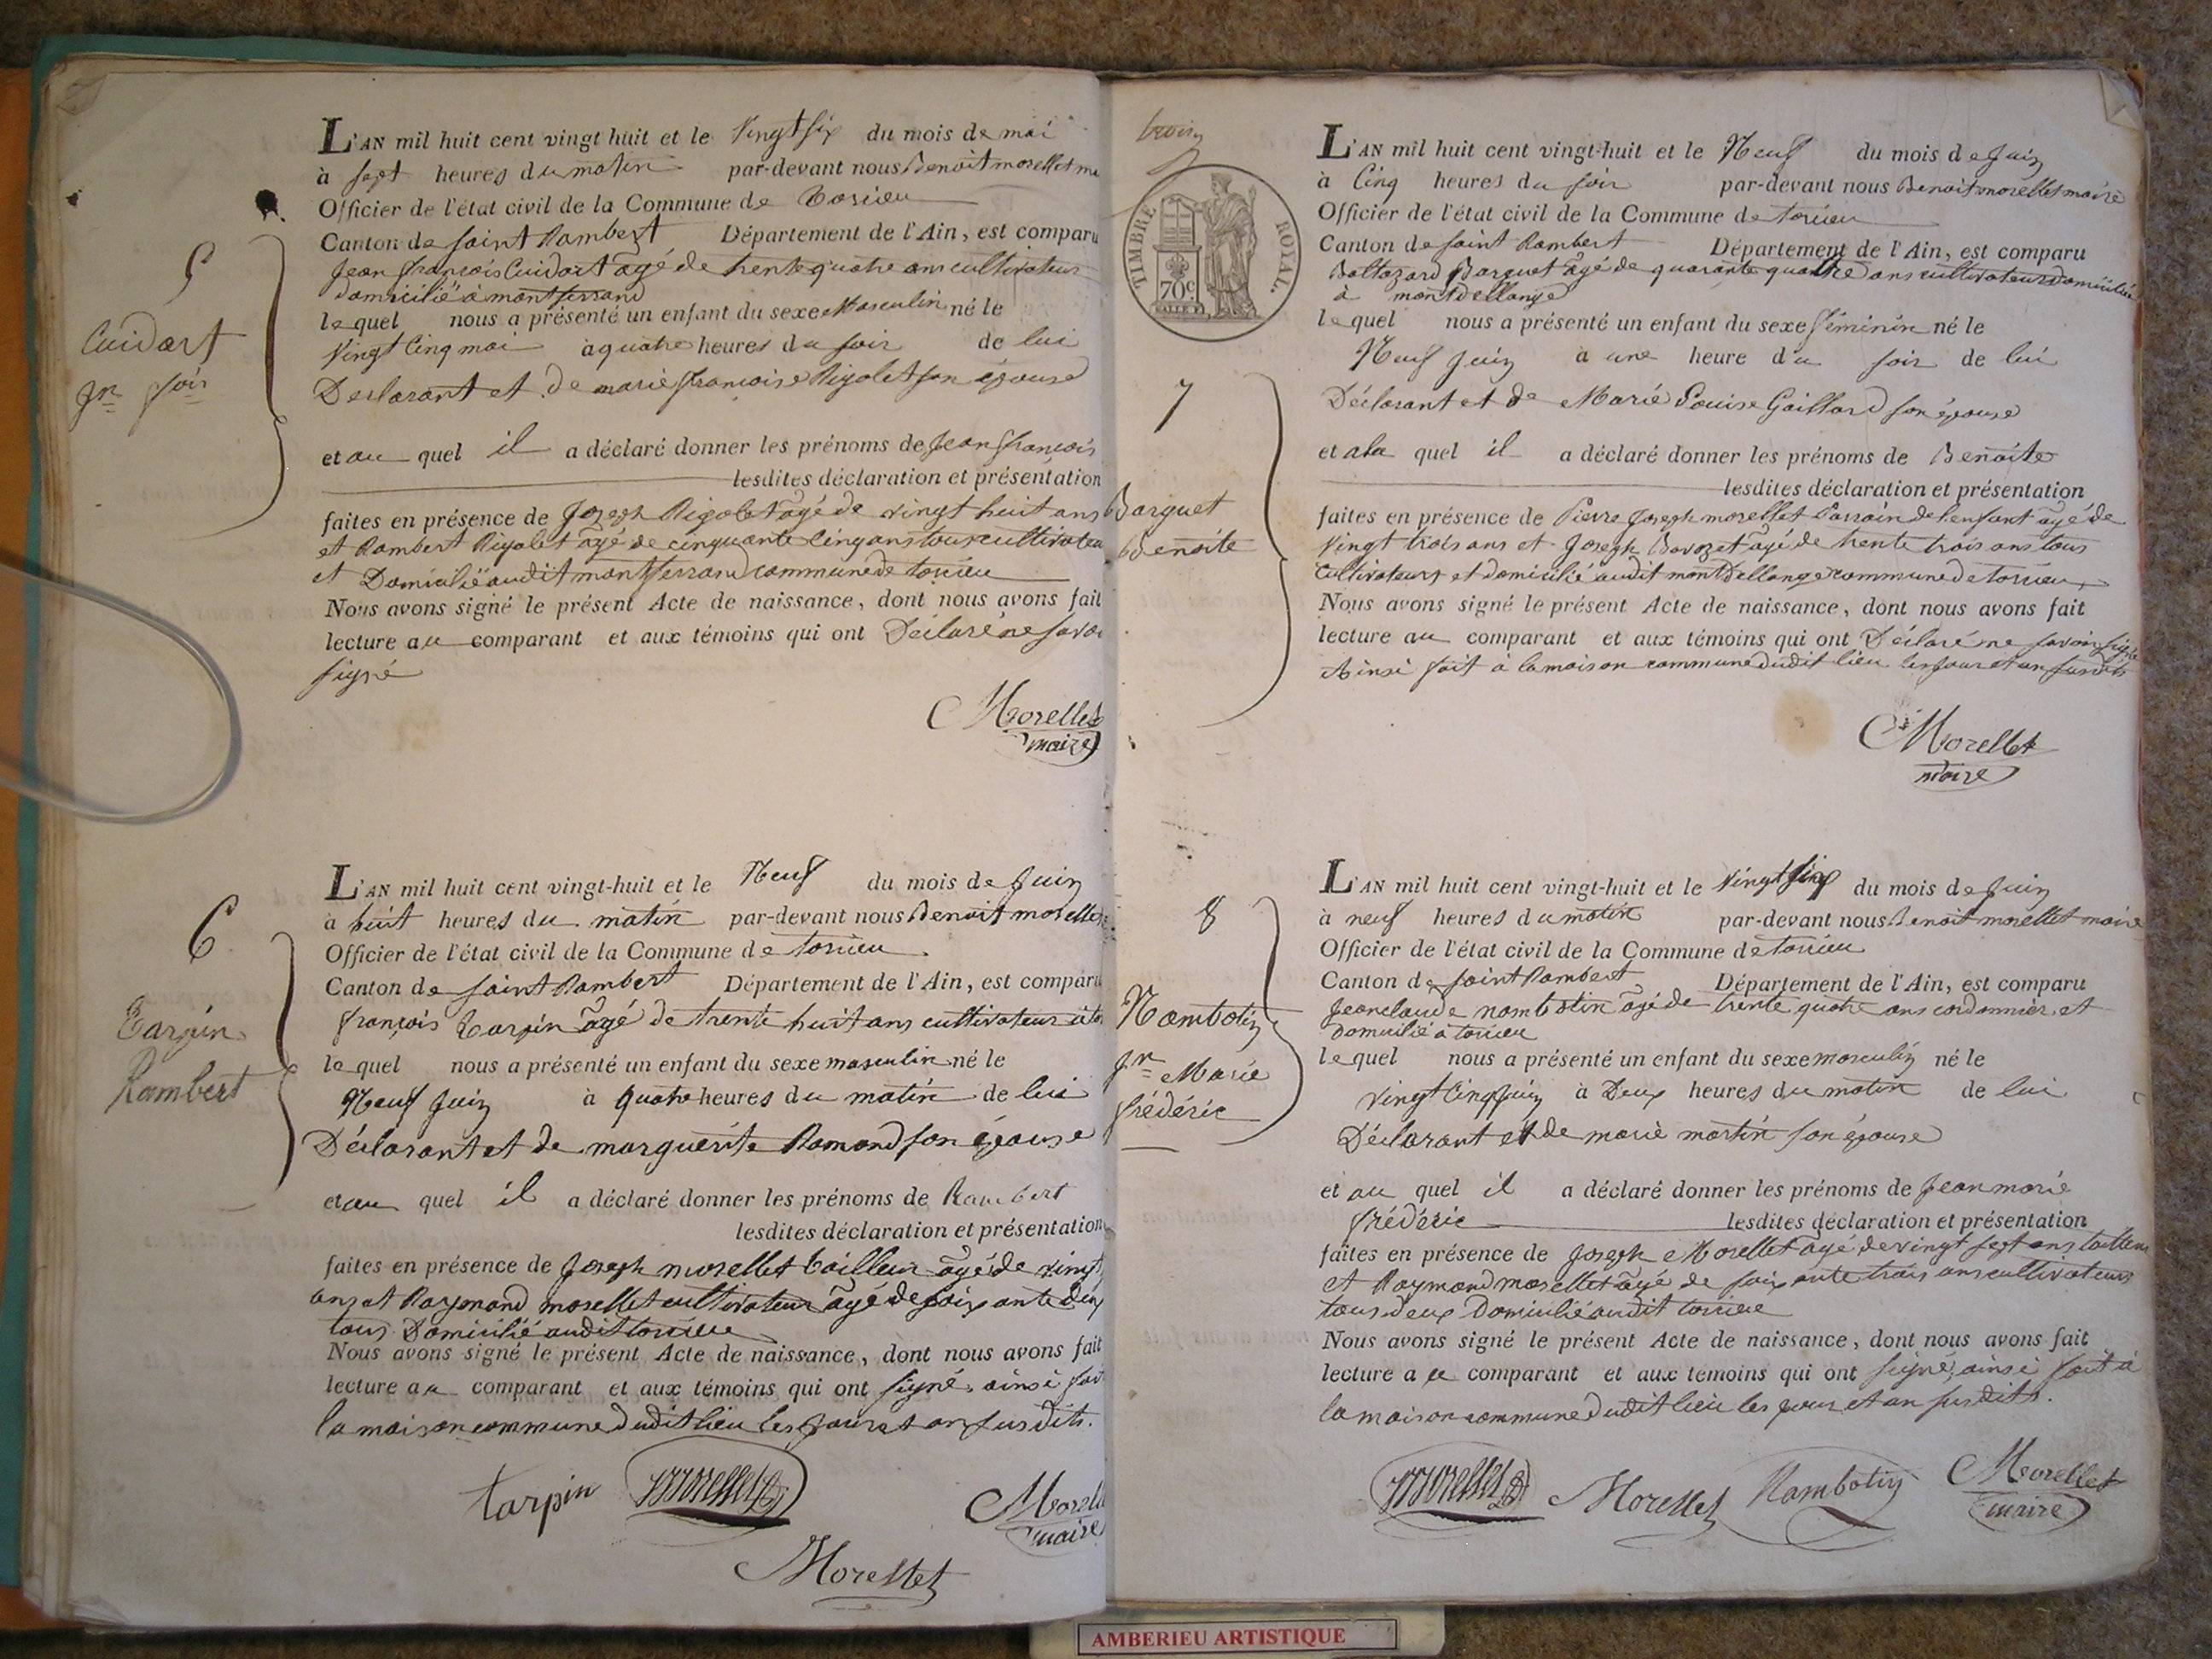 5
Cuidart
Jn fois
L'AN mil huit cent vingt huit et le Vingt six du mois de mai
à sept heures du matin par-devant nous Benoit morellet
Officier de l'état civil de la Commune de torcieu
Canton de saint Rambert Département de l'Ain, est comparu
Jean françois Cuidart agé de trente quatre ans cultivateur
domicilié à montferrand
lequel nous a présenté un enfant du sexe Masculin né le
Vingt Cinq mai à quatre heures du soir de lui
Declarant et de marie françoise Rigolet son épouse
et au quel il a déclaré donner les prénoms de Jean françois
lesdites déclaration et présentation
faites en présence de Joseph Rigolet agé de vingt huit ans
et Rambert Rigolet agé de cinquante Cinq ans tous cultivateu
et Domicilié audit montferrand commune de torcieu
Nous avons signé le présent Acte de naissance, dont nous avons fait
lecture au comparant et aux témoins qui ont Déclaré ne savoi
signé
Morellet
maire
6
Tarpin
Rambert
L'AN mil huit cent vingt-huit et le Neuf du mois de Juin
à huit heures du matin par-devant nous Benoit morellet
Officier de l'état civil de la Commune de torcieu
Canton de saint Rambert Département de l'Ain, est comparu
françois tarpin agé de trente huit ans cultivateur à
lequel nous a présenté un enfant du sexe masculin né le
Neuf Juin à quatre heures du matin de lui
Déclarant et de marguerite Ramond son épouse
et au quel il a déclaré donner les prénoms de Rambert
lesdites déclaration et présentation
faites en présence de Joseph morellet tailleur agé de vingt
ans et Raymond morellet cultivateur agé de soixante deux
tous Domicilié audit torcieu
Nous avons signé le présent Acte de naissance, dont nous avons fait
lecture au comparant et aux témoins qui ont signé, ainsi fai
la maison commune dudit lieu les jour et an susdits.
tarpin Morellet Morell
maire
Morellet
TIMBRE ROYAL.
70c
7
Barguet
Benoite
L'AN mil huit cent vingt-huit et le Neuf du mois de Juin
à Cinq heures du soir par-devant nous Benoit morellet maire
Officier de l'état civil de la Commune de torcieu
Canton de saint Rambert Département de l'Ain, est comparu
Baltazard Barguet agé de quarante quatre ans cultivateur domicilié
à montdellange
lequel nous a présenté un enfant du sexe féminin né le
Neuf Juin à une heure du soir de lui
Déclarant et de Marie Louise Gaillard son épouse
et a la quel il a déclaré donner les prénoms de Benoite
lesdites déclaration et présentation
faites en présence de Pierre Joseph morellet Parrain de l'enfant agé de
Vingt trois ans et Joseph Bavozet agé de trente trois ans tous
Cultivateurs et domicilié audit montdellange commune de torcieu
Nous avons signé le présent Acte de naissance, dont nous avons fait
lecture au comparant et aux témoins qui ont Déclaré ne savoir signé
Ainsi fait à la maison commune dudit lieu les jour et an susdits
Morellet
maire
8
Nambotin
Jn Marie
frédéric
L'AN mil huit cent vingt-huit et le Vingt Cinq du mois de Juin
à neuf heures du matin par-devant nous Benoit morellet maire
Officier de l'état civil de la Commune de torcieu
Canton de saint Rambert Département de l'Ain, est comparu
Jean claude nambotin agé de trente quatre ans cordonnier et
domicilié à torcieu
lequel nous a présenté un enfant du sexe masculin né le
vingt Cinq Juin à Deux heures du matin de lui
Déclarant et de marie martin son épouse
et au quel il a déclaré donner les prénoms de Jean marie
frédéric lesdites déclaration et présentation
faites en présence de Joseph Morellet agé de vingt sept ans tailleur
et Raymond morellet agé de soixante trois ans cultivateur
tous deux Domicilié audit torcieu
Nous avons signé le présent Acte de naissance, dont nous avons fait
lecture au comparant et aux temoins qui ont signé, ainsi fait à
la maison commune dudit lieu les jour et an susdits.
Morellet Morellet Nambotin Morellet
maire
AMBERIEU ARTISTIQUE